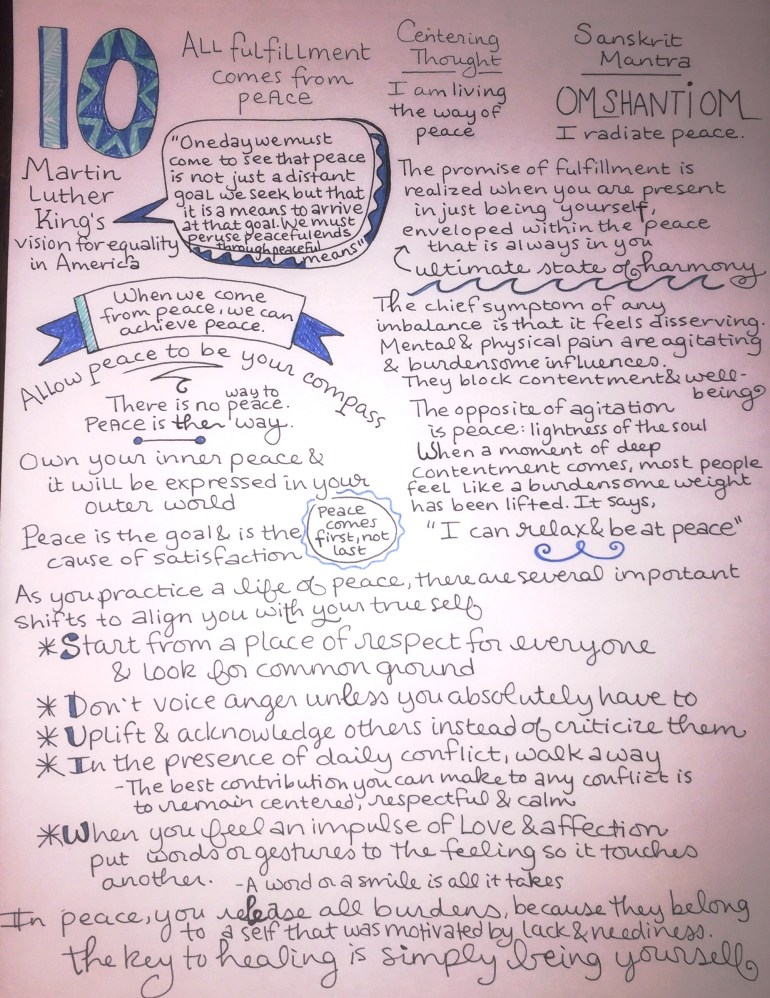 10
ALL fulfillment
comes from
peAce
Centering
Thought
I am living
the way of
peace
Sanskrit
Mantra
OM SHANTi OM
I radiate peace.
Martin
Luther
King's
vision for equality
in America
"One day we must
come to see that peace
is not just a distant
goal we seek but that
it is a means to arrive
at that goal. We must
peruse peaceful ends
through peaceful
means"
The promise of fulfillment is
realized when you are present
in just being yourself,
enveloped within the peace
that is always in you
ultimate state of harmony
When we come
from peace, we can
achieve peace.
Allow peace to be your compass
There is no way to peace.
PeAce is ther way.
Own your inner peace &
it will be expressed in your
outer world
Peace is the goal & is the
cause of satisfaction
Peace
comes
first, not
last
The chief symptom of any
imbalance is that it feels disserving.
Mental & physical pain are agitating
& burdensome influences.
They block contentment & well-
being
The opposite of agitation
is peace: lightness of the soul
When a moment of deep
contentment comes, most people
feel like a burdensome weight
has been lifted. It says,
"I can relax & be at peace"
As you practice a life of peace, there are several important
shifts to align you with your true self
* Start from a place of respect for everyone
& look for common ground
* Don't voice anger unless you absolutely have to
* Uplift & acknowledge others instead of criticize them
* In the presence of daily conflict, walk away
- The best contribution you can make to any conflict is
to remain centered, respectful & calm
* When you feel an impulse of Love & affection
put words or gestures to the feeling so it touches
another. - A word or a smile is all it takes
In peace, you release all burdens, because they belong
to a self that was motivated by lack & neediness.
the key to healing is simply being yourself